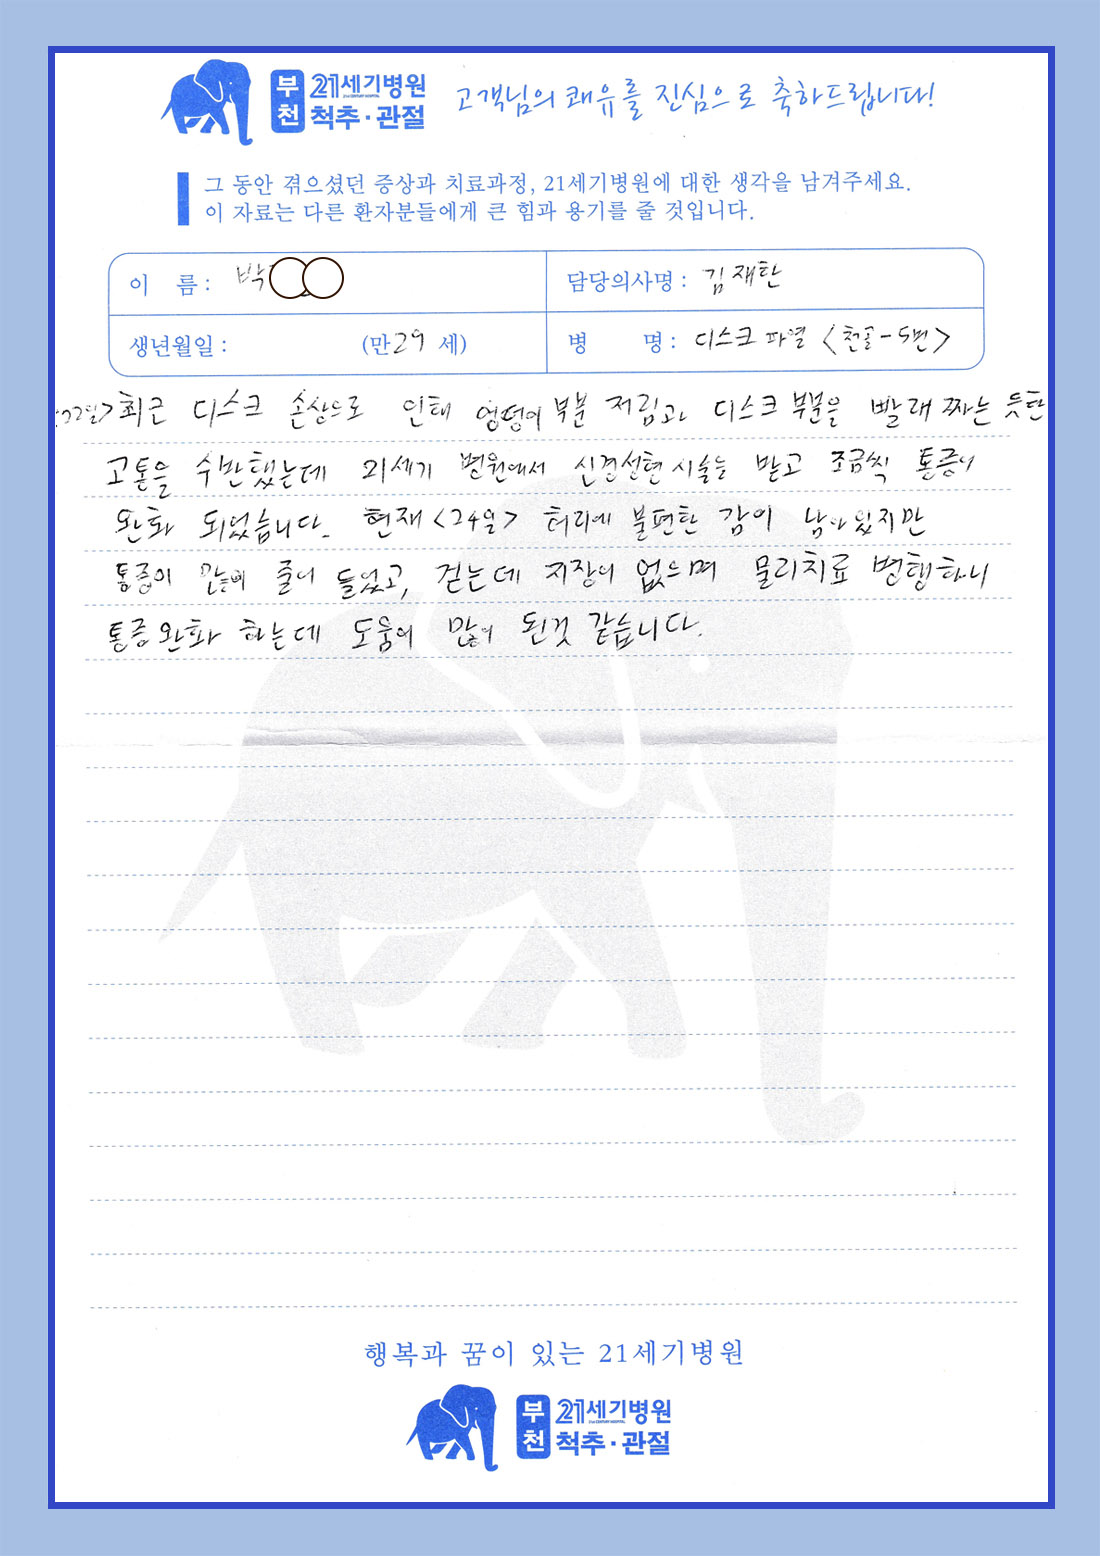 부천 21세기병원 척추·관절
고객님의 쾌유를 진심으로 축하드립니다!
그 동안 겪으셨던 증상과 치료과정, 21세기병원에 대한 생각을 남겨주세요.
이 자료는 다른 환자분들에게 큰 힘과 용기를 줄 것입니다.
이 름 : 박
담당의사명 : 김재한
생년월일 : (만 29 세)
병 명 : 디스크 파열 <천골-5번>
22일> 최근 디스크 손상으로 인해 엉덩이 부분 저림과 디스크 부분을 빨래 짜는 듯한
고통을 수반했는데 21세기 병원에서 신경성형시술을 받고 조금씩 통증이
완화 되었습니다. 현재 <24일> 허리에 불편한 감이 남아있지만
통증이 많이 줄어 들었고, 걷는데 지장이 없으며 물리치료 병행하니
통증완화 하는데 도움이 많이 된것 같습니다.
행복과 꿈이 있는 21세기병원
부천 21세기병원 척추·관절